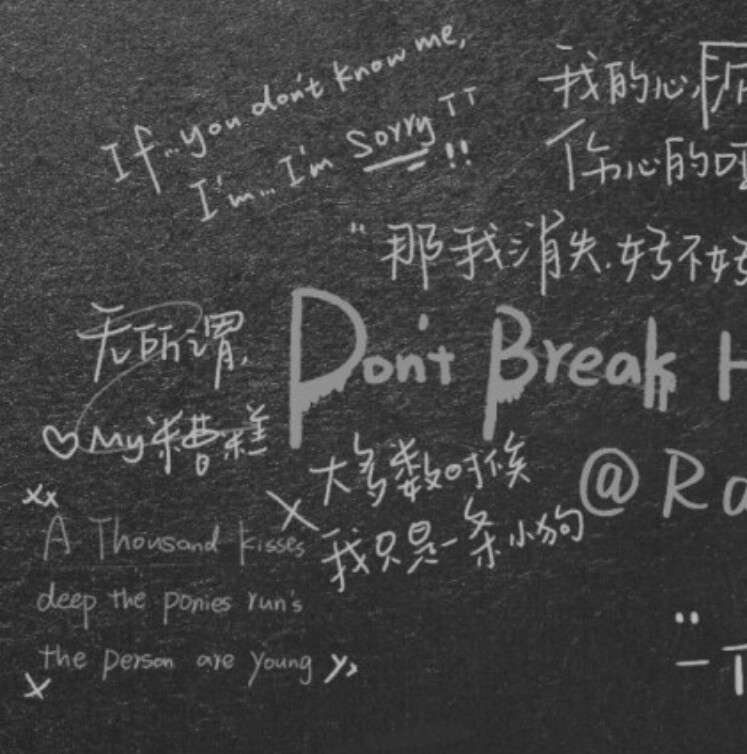 If...you don't know me,
I'm...I'm Sorry TT !!
我的心,
伤心的
"那我消失.好不好
无所谓,
Don't Break H
♡ My糟糕
大多数时候
@Ro
xx
A Thousand kisses
我只是一条小狗
deep the ponies run's
the person are young